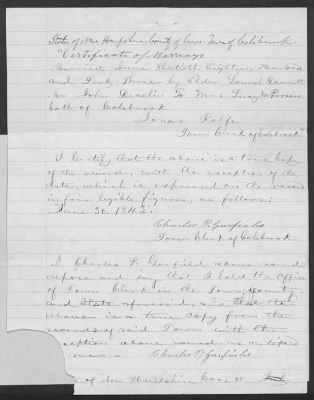 State of New Hampshire County of Coos Town of Colebrook
"Certificate of Marriage
Married June thirtieth Eighteen Hundred
and Forty Three by Elder Daniel
Mr John Devlin To Mrs Lucy M Persons
both of Colebrook
Isaac Rolfe
Town Clerk of Colebrook"
I Certify that the above is a true Copy
of the record, with the exception of the
date, which is expressed on the record
in fair legible figures, as follows:
June 30. 1843.
Charles P. Garfield
Town Clerk of Colebrook
I Charles P. Garfield above named
depose and say that I hold the Office
of Town Clerk in the Town, County,
and State aforesaid, and that the
above is a true copy from the
records of said Town with the
exception above named as
Charles P Garfield
of New Hampshire Coos SS